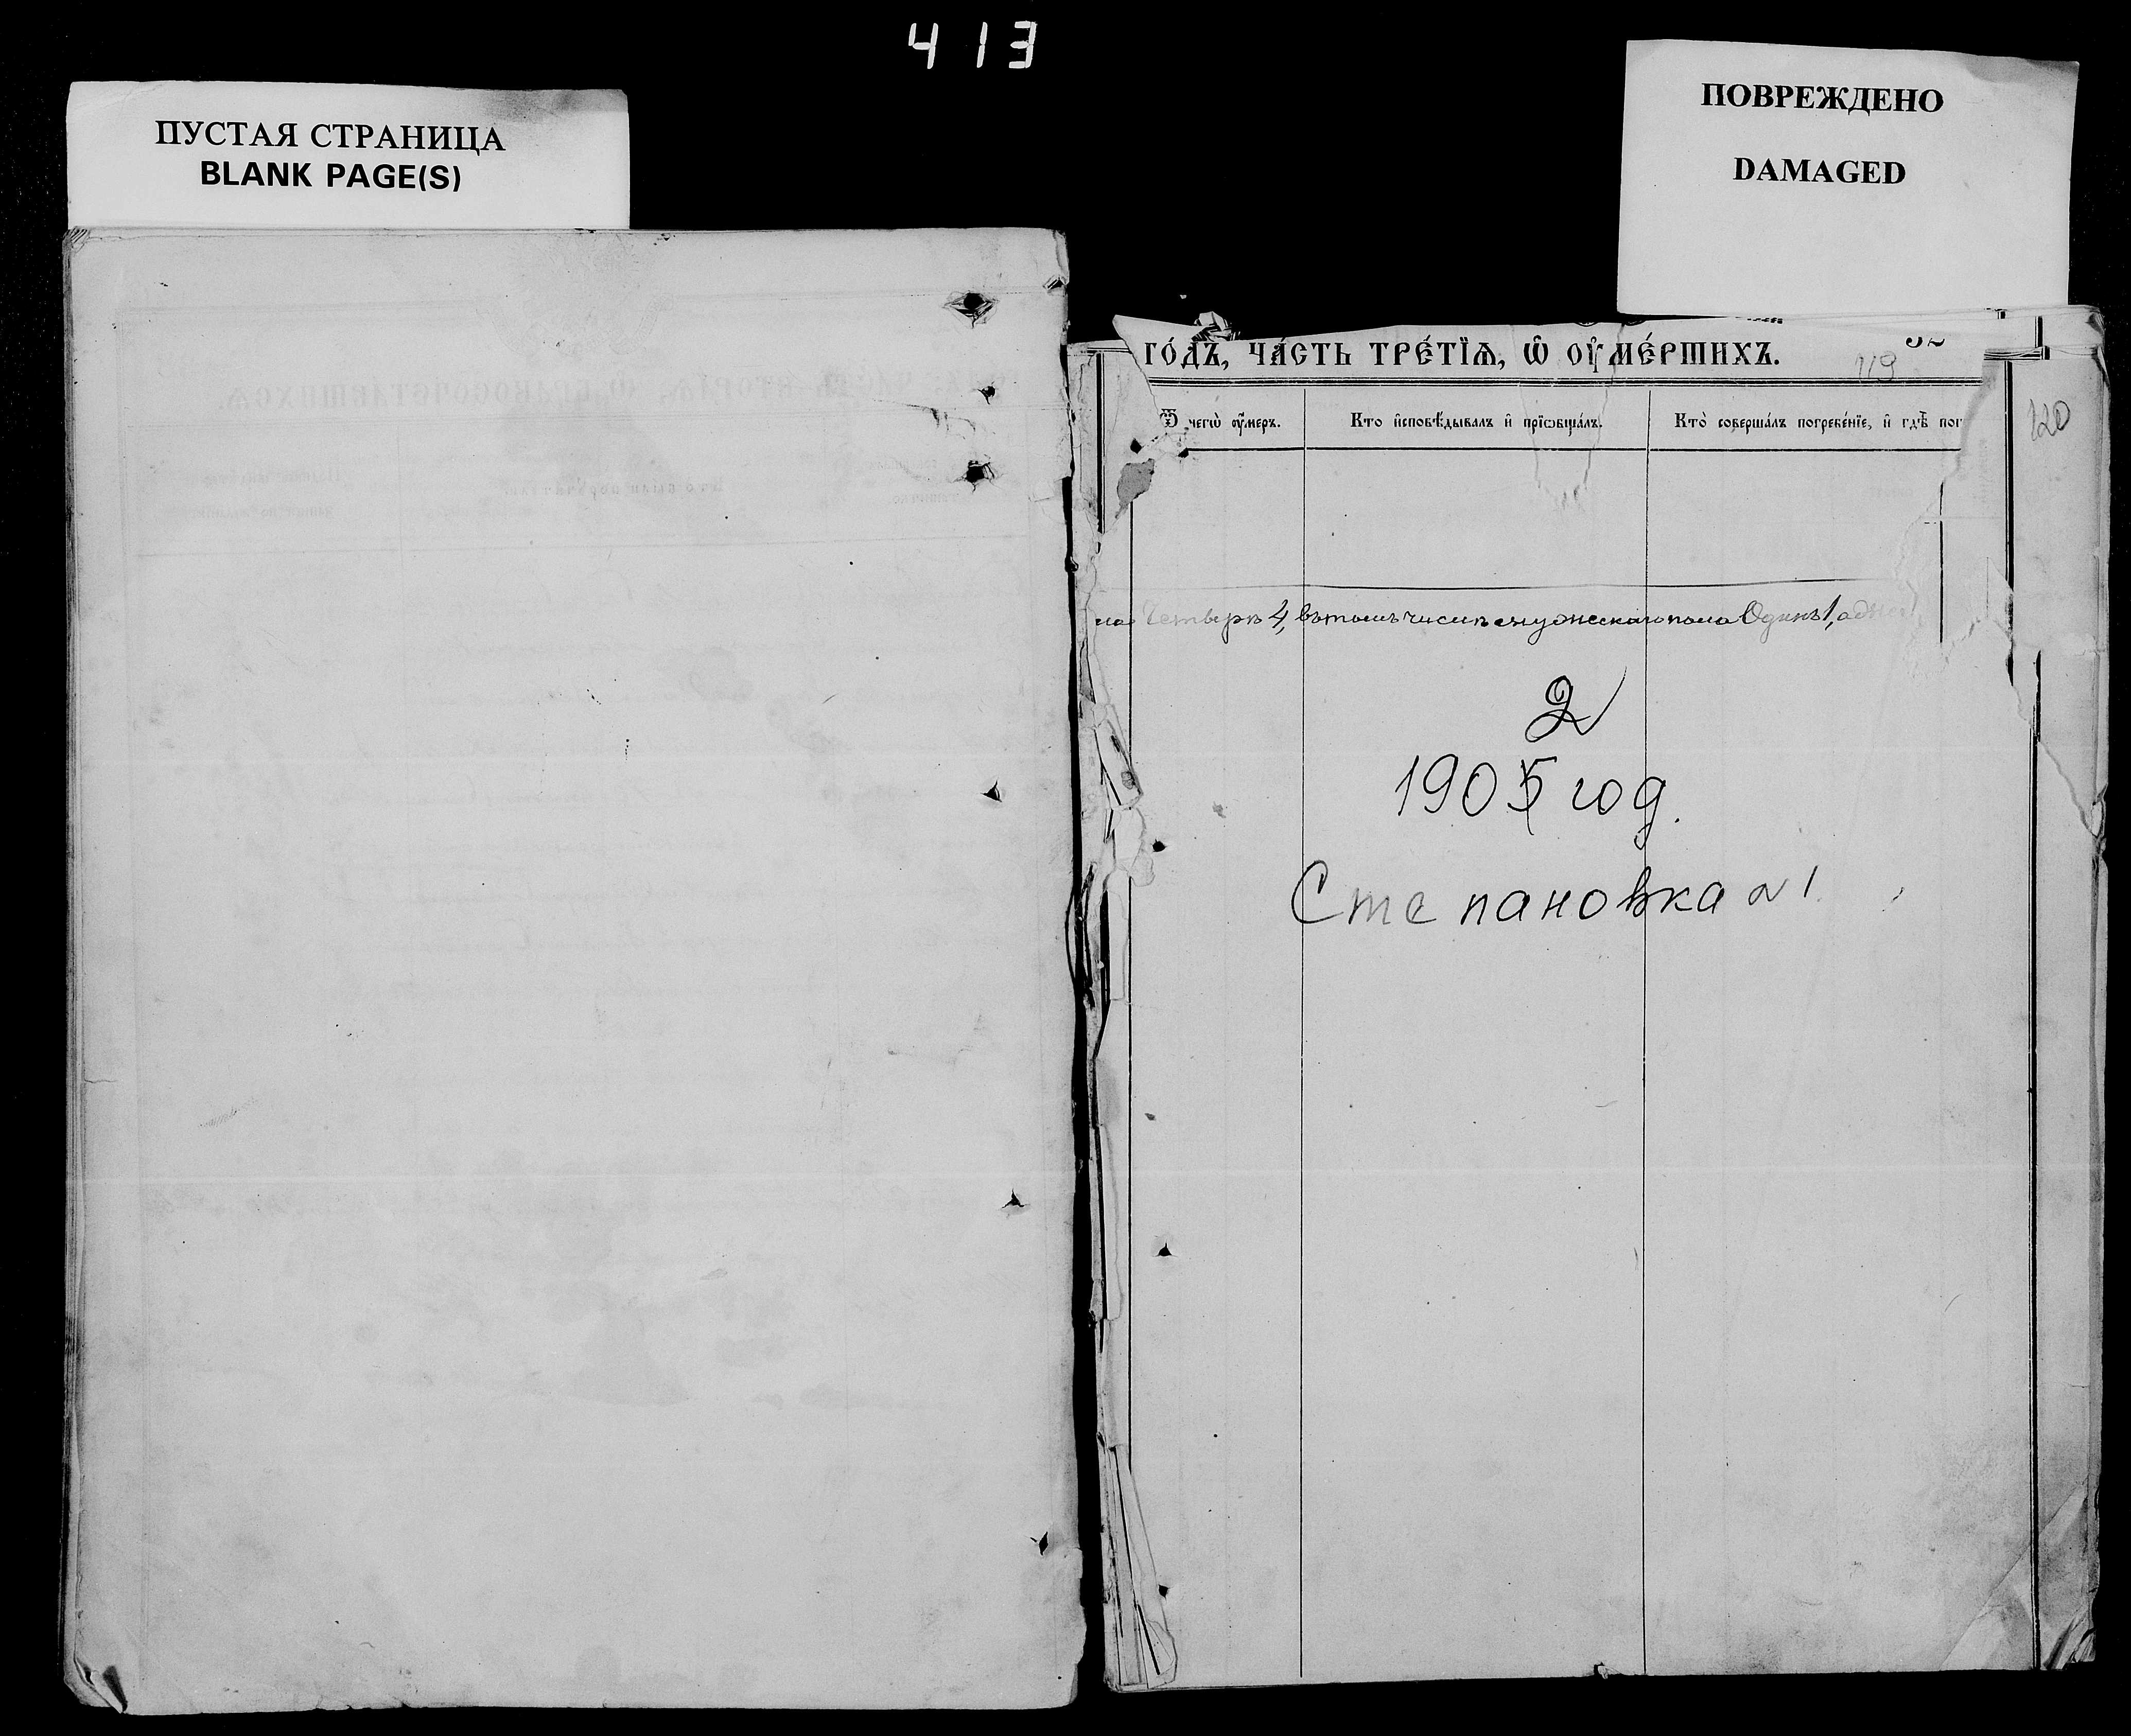 413
ПУСТАЯ СТРАНИЦА
BLANK PAGE(S)
ПОВРЕЖДЕНО
DAMAGED
ГО́ДЪ, ЧА́СТЬ ТРЕ́ТЇѦ, Ѡ҆ ОУ҆МЕ́РШИХЪ.
119
120
Ѿ чегѡ̀ оу҆́меръ.
Кто и҆сповѣ́дывалъ и҆ прїѡбща́лъ.
Кто̀ соверша́лъ погребе́нїе, и҆ гдѣ̀ пог
Четыре 4, въ томъ числѣ мужескаго пола Одинъ 1, а
2
1905 год.
Степановка №1